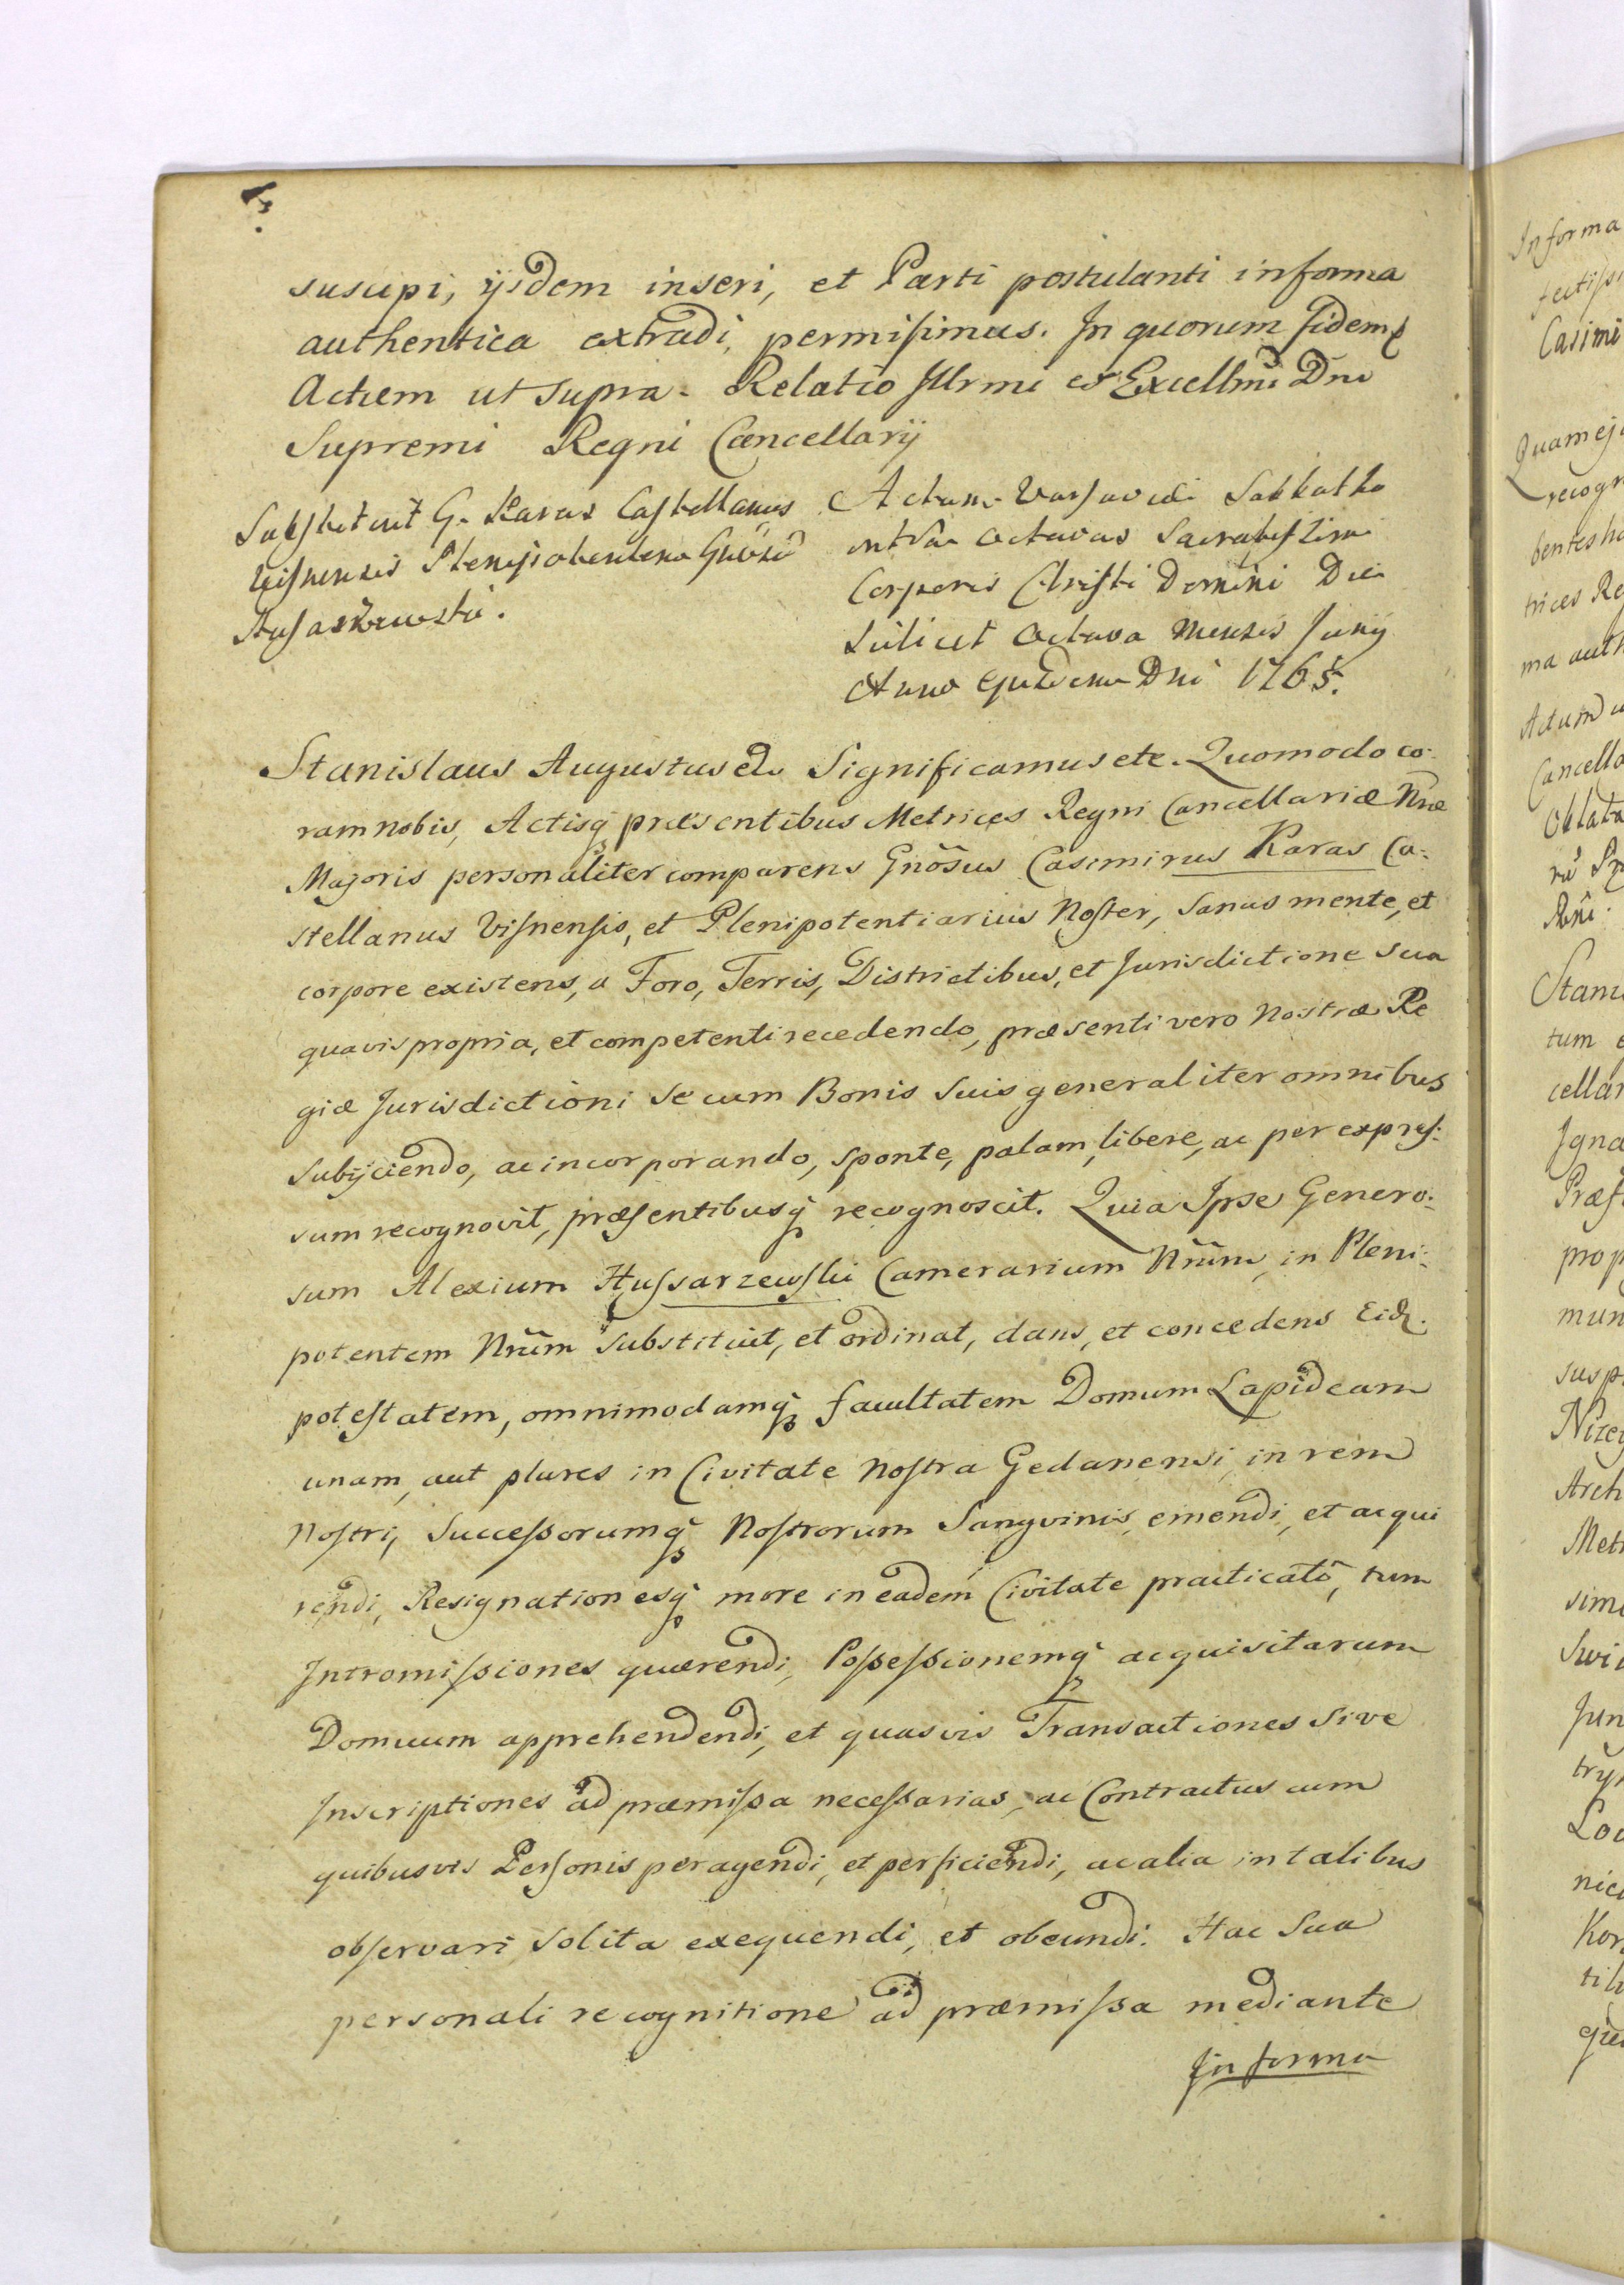 suscipi, ijsdem inseri, et Parti postulanti in forma
authentica extradi, permisimus. In quorum fidem
Actum ut supra. Relatio Illrmi et Excellmi Dni
Supremi Regni Cancellarij
Substituit G. Karas Castellanus
Visnensis Plenipotentem Gnosũ
Husarzewski.
Actum Varsaviæ Sabbatho
intra Octavas Sacratissimi
Corporis Christi Domini Die
Scilicet Octava Mensis Junij
Anno ejusdem Dni 1765.
Stanislaus Augustus etc. Significamus etc. Quomodo co-
ram nobis, Actisq præsentibus Metrices Regni Cancellariæ Nræ
Majoris personaliter comparens Gnõsus Casimirus Karas Ca-
stellanus Visnensis, et Plenipotentiarius Noster, sanus mente, et
corpore existens, a Foro, Terris, Districtibus, et Jurisdictione sua
quavis propria, et competenti recedendo, præsenti vero Nostræ Re
giæ Jurisdictioni se cum Bonis suis generaliter omnibus
subijciendo, ac incorporando, sponte, palam, libere, ac per expres-
sum recognovit, præsentibusq recognoscit. Quia Ipse Genero-
sum Alexium Hussarzewski Camerarium Nrum, in Pleni-
potentem Nrum substituit, et ordinat, dans, et concedens Eid.
potestatem, omnimodamq facultatem Domum Lapideam
unam, aut plures in Civitate Nostra Gedanensi, in rem
Nostri, Successorumq Nostrorum Sangvinis, emendi, et acqui
rendi, Resignationesq more in eadem Civitate practicato, tum
Intromissiones quærendi, Possessionemq acquisitarum
Domuum apprehendendi, et quasvis Transactiones sive
Inscriptiones ad præmissa necessarias, ac Contractus cum
quibusvis Personis peragendi, et perficiendi, ac alia in talibus
observari solita exequendi, et obeundi. Hac Sua
personali recognitione ad præmissa mediante
In forma